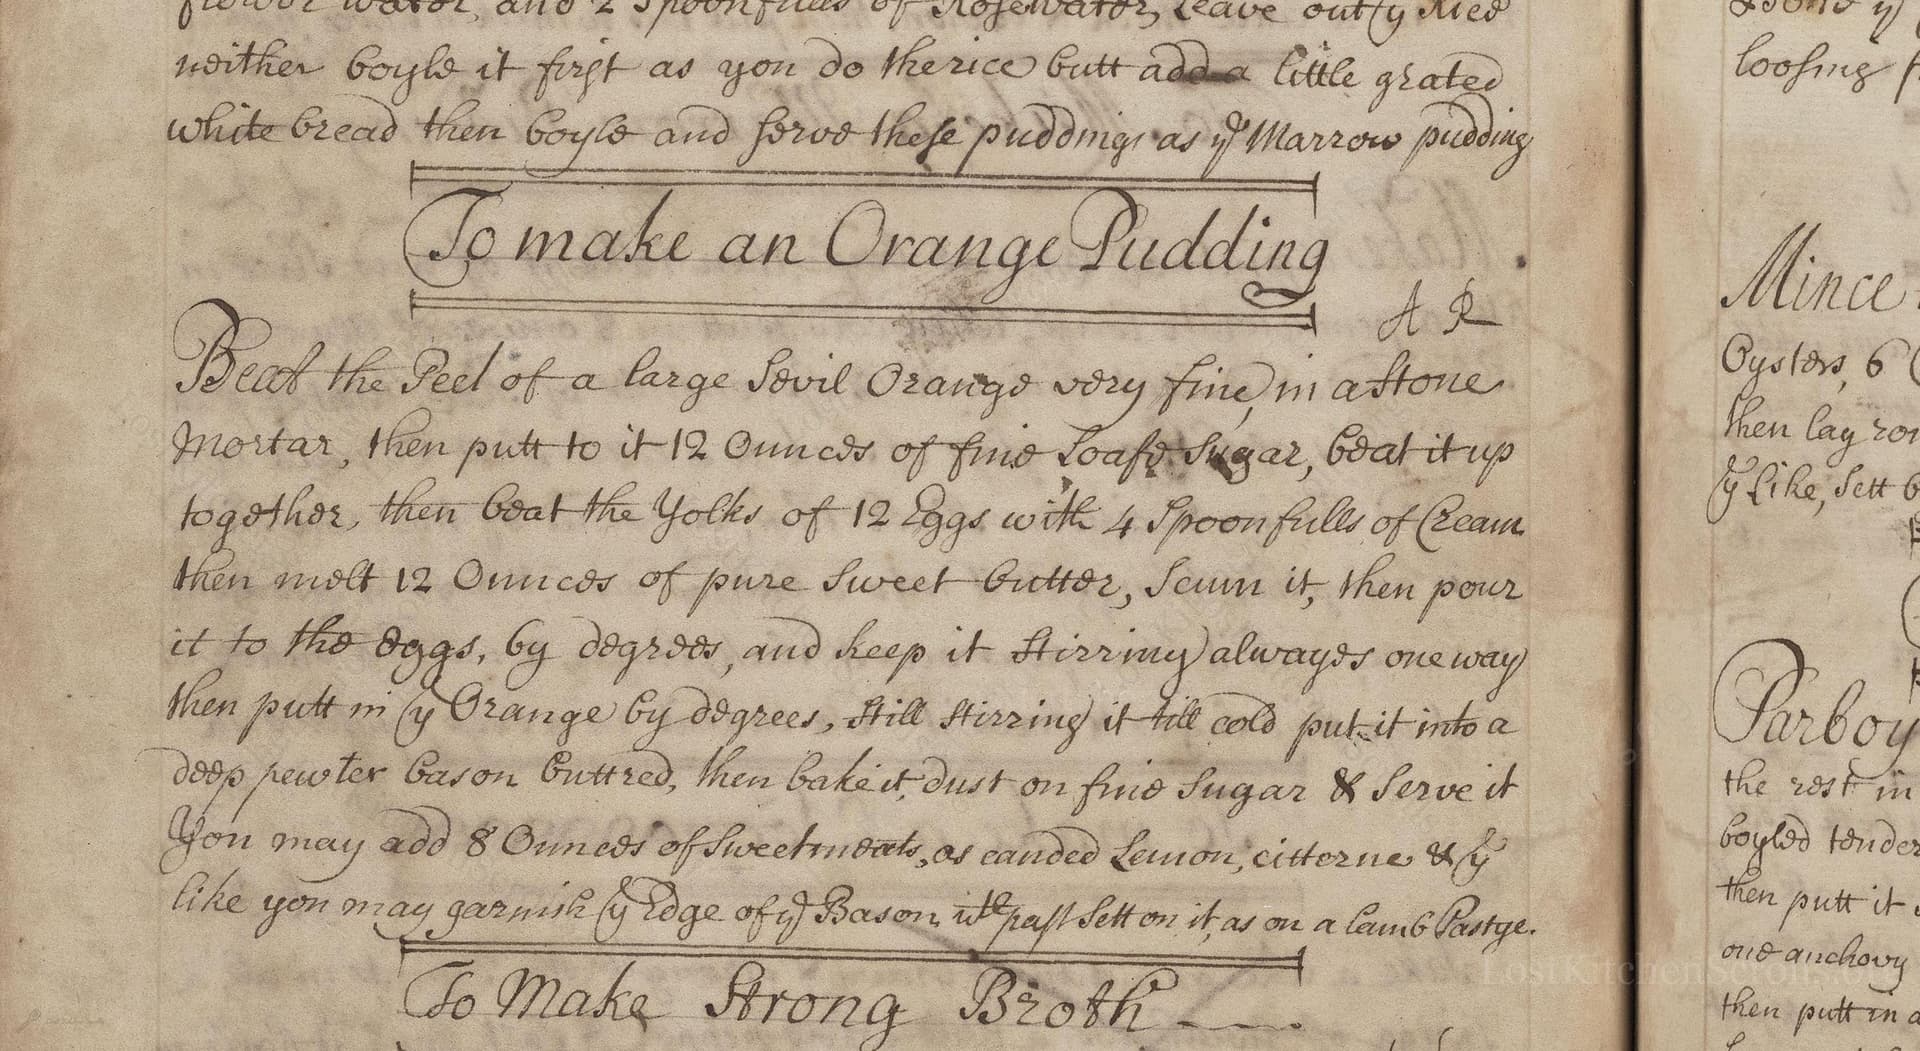 flower water, and 2 Spoonfulls of Rosewater, Leave out ye Rice
neither boyle it first as you do the rice butt add a little grated
white bread then boyle and serve these puddings as ye Marrow pudding
To make an Orange Pudding
A R
Beat the Peel of a large Sevil Orange very fine, in a Stone
Mortar, then putt to it 12 Ounces of fine Loafe Sugar, beat it up
together, then beat the Yolks of 12 Eggs with 4 Spoonfulls of Cream
then melt 12 Ounces of pure Sweet butter, Scum it, then pour
it to the eggs, by degrees, and keep it Stirring alwayes one way
then putt in ye Orange by degrees, Still Stirring it till cold put it into a
deep pewter bason buttred, then bake it, dust on fine Sugar & Serve it
You may add 8 Ounces of Sweetmeats, as canded Lemon, citterne & ye
like you may garnish ye Edge of ye Bason wth past Sett on it, as on a lamb Pastye.
To Make Strong Broth
loosing
Mince
Oysters, 6
then lay
ye like, Sett
Parboy
the rest in
boyled tender
then putt it
one anchovy
then putt in
LostKitchen